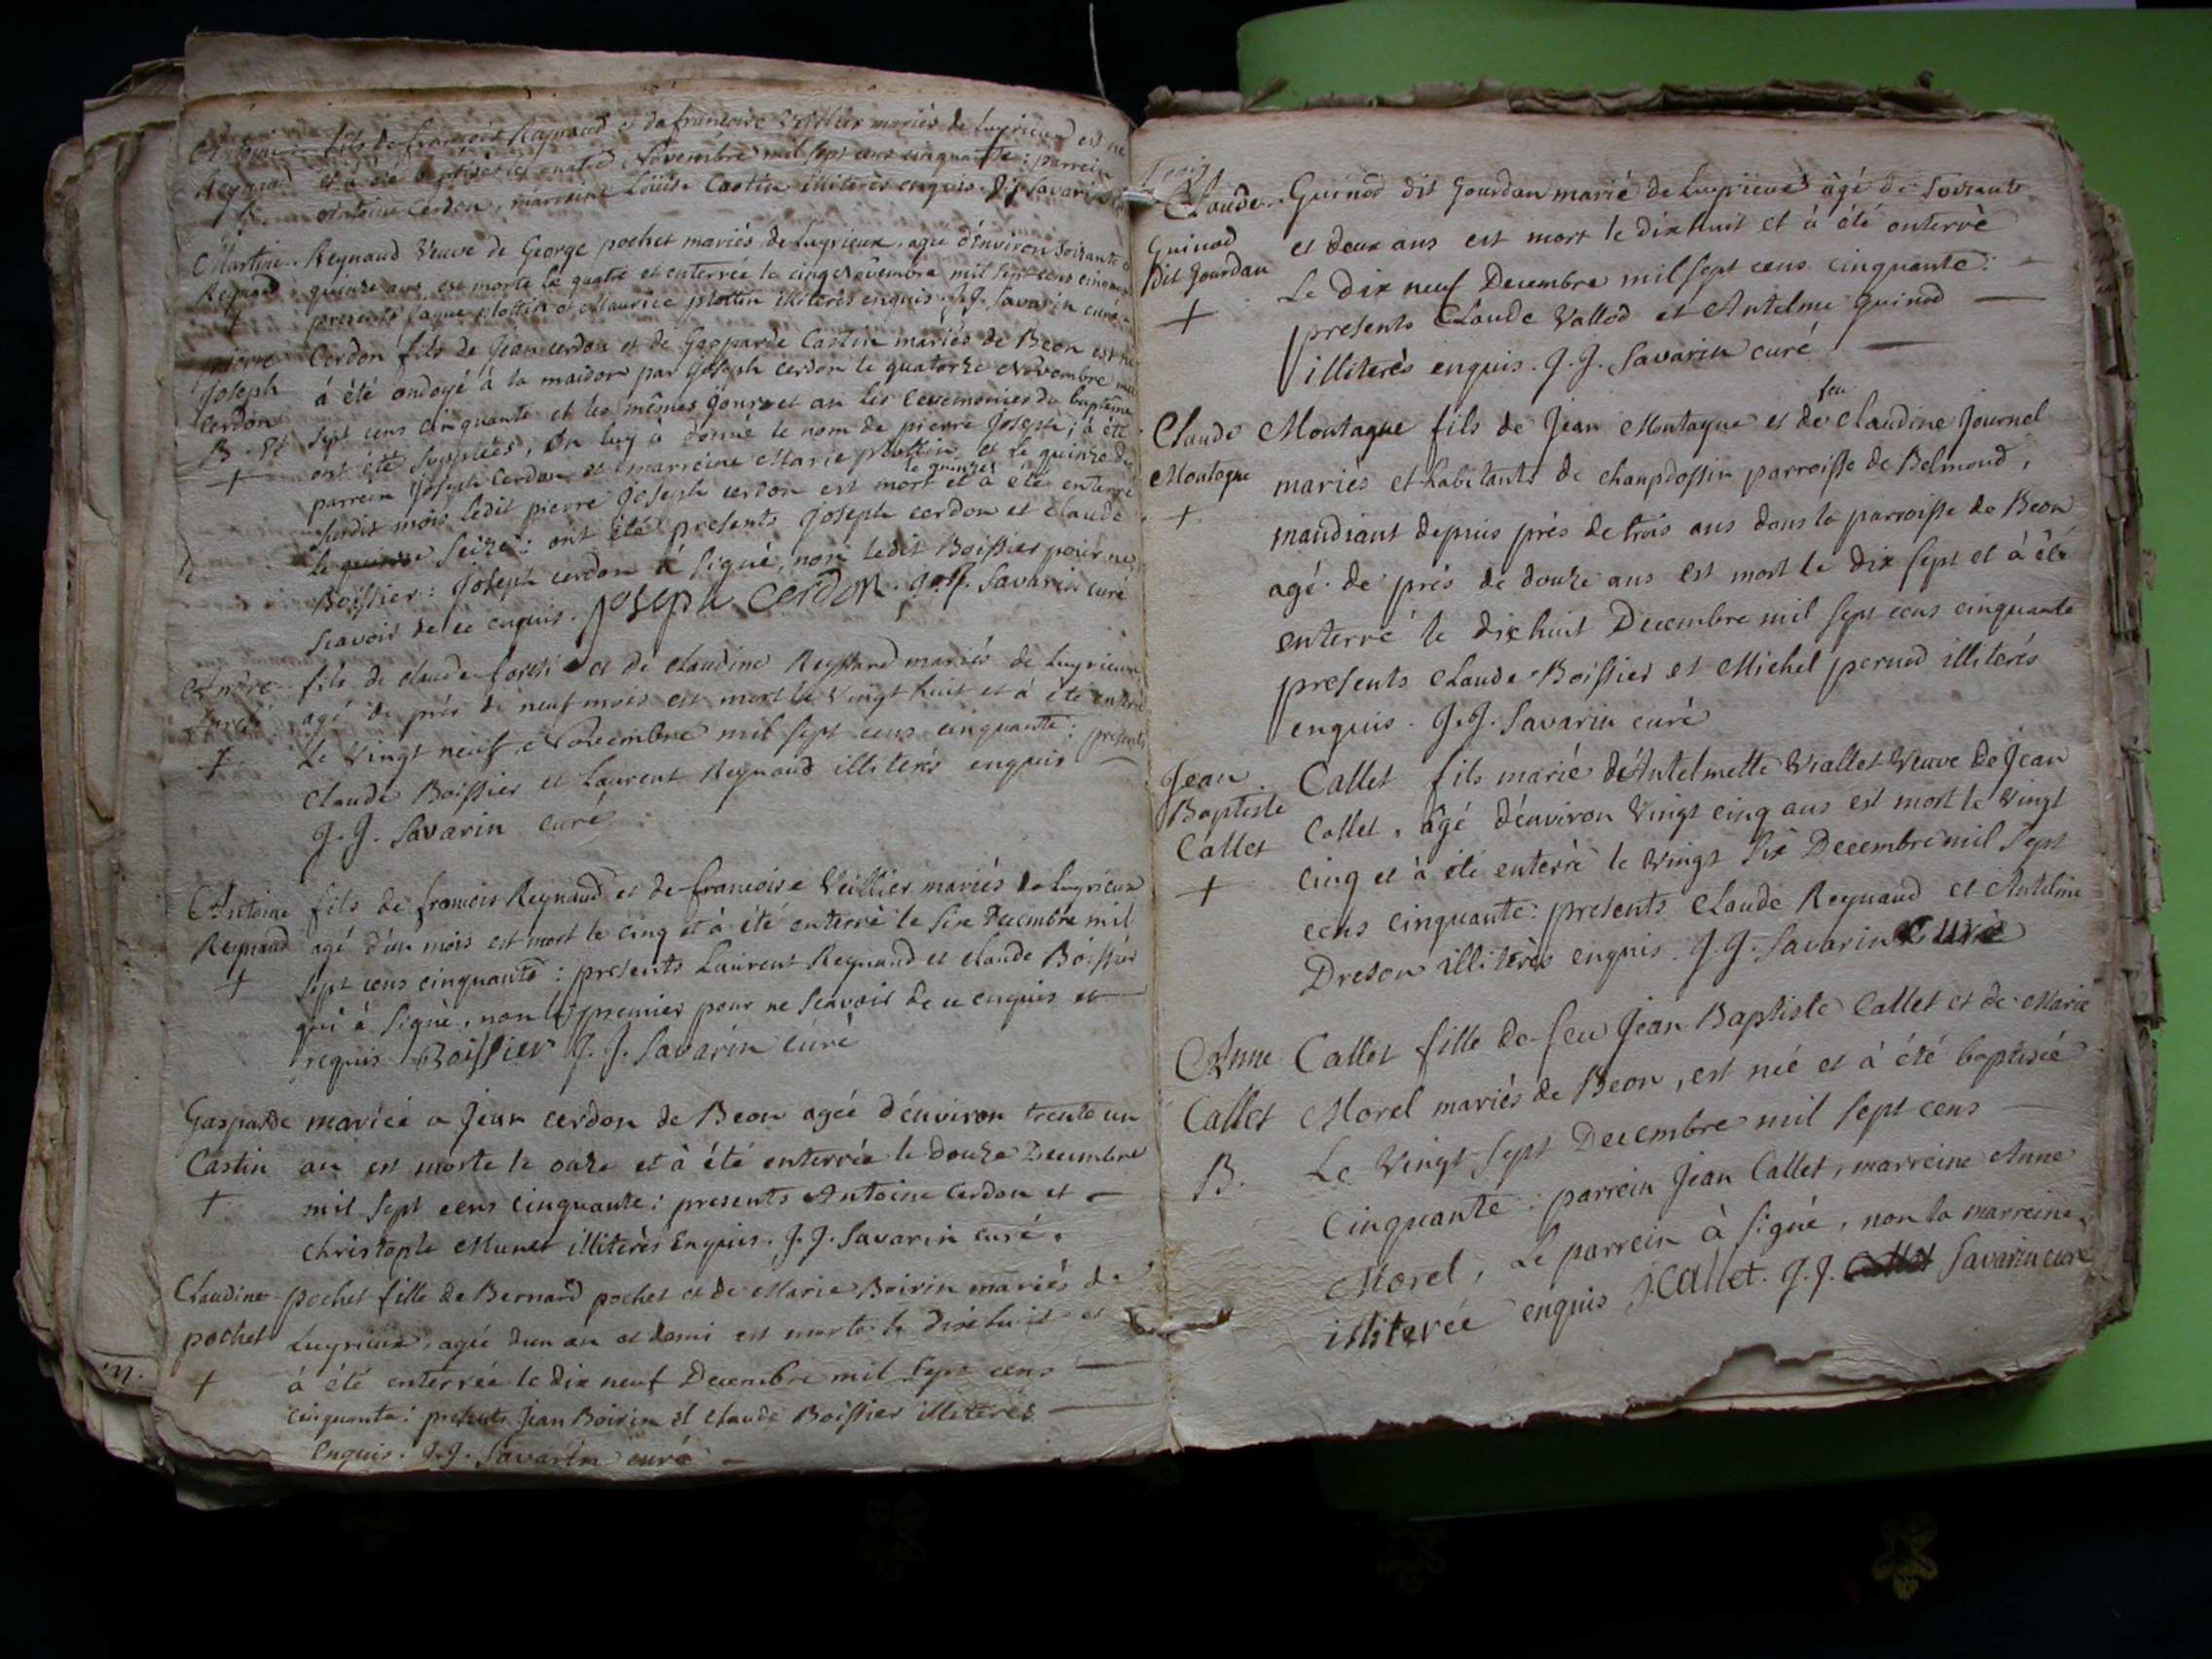 Antoine fils de francois Reynaud et de francoise Veillier mariés de Luyrieux est né
Reynaud et à été baptisé le quatre Novembre mil sept cens cinquante : parrein
B. Antoine Cerdon, marreine Louise Castin illiterés enquis. J. J. Savarin
Martine Reynaud Veuve de George pochet mariés de Luyrieux, agée d'environ soixante
Reynaud quinze ans est morte le quatre et enterrée le cinq Novembre mil sept cens cinquante
+ presents plottin et Maurice plottin illiterés enquis. J. J. Savarin curé
pierre Cerdon fils de Jean cerdon et de Gasparde Castin mariés de Beon est né
Joseph à été ondoyé à la maison par Joseph cerdon le quatorze Novembre mil
Cerdon sept cens cinquante et les mêmes jours et an les Ceremonies du baptême
B. et ont été supplées, on luy à donné le nom de pierre Joseph ; à été
+ parrein Joseph Cerdon et marreine Marie plottin, et le quinze du
susdit mois ledit pierre Joseph cerdon est mort le quinze et à été enterré
le seize : ont été presents Joseph cerdon et Claude
Boissier : Joseph cerdon à signé, non ledit Boissier pour ne
scavoir de ce enquis. Joseph Cerdon. J. J. Savarin curé
André fils de claude et de claudine mariés de Luyrieux
agé de près de neuf mois est mort le Vingt huit et à été enterré
+ Le Vingt neuf Novembre mil sept cens cinquante : presents
Claude Boissier et Laurent Reynaud illiterés enquis —
J. J. Savarin curé
Antoine fils de francois Reynaud et de francoise Veillier mariés de Luyrieux
Reynaud agé d'un mois est mort le cinq et à été enterré le six Decembre mil
+ sept cens cinquante : presents Laurent Reynaud et claude Boissier
qui à signé, non le premier pour ne scavoir de ce enquis et —
requis Boissier J. J. Savarin curé
Gasparde mariée a Jean cerdon de Beon agée d'environ trente un
Castin an est morte le onze et à été enterrée le douze Decembre
+ mil sept cens cinquante : presents Antoine Cerdon et —
christophe Munet illiterés Enquis. J. J. Savarin curé.
Claudine pochet fille de Bernard pochet et de Marie Boirin mariés de
pochet Luyrieux, agée d'un an et demi est morte le dixhuit et
+ à été enterrée le dix neuf Decembre mil sept cens —
cinquante : presents Jean Boirin et claude Boissier illiterés —
Enquis. J. J. Savarin curé —
Claude Guinod dit Gourdan marié de Luyrieux âgé de soixante
Guinod et deux ans est mort le dixhuit et à été enterré
dit Gourdan Le dix neuf Decembre mil sept cens cinquante : —
+ presents Claude Vallod et Antelme Guinod —
illiterés enquis. J. J. Savarin curé —
Claude Montagne fils de Jean Montagne et de feu claudine Journel
Montagne mariés et habitants de champdossin parroisse de Belmond,
+ mandiant depuis près de trois ans dans la parroisse de Beon
agé de près de douze ans est mort le dix sept et à été
enterré le dixhuit Decembre mil sept cens cinquante
presents claude Boissier et Michel pernod illiterés
enquis. J. J. Savarin curé
Jean Callet fils marié d'Antelmette Viallet Veuve de Jean
Baptiste Collet, âgé d'environ Vingt cinq ans est mort le Vingt
Callet cinq et à été enterré le Vingt six Decembre mil sept
+ cens cinquante : presents claude Reynaud et Antelme
Dreson illiterés enquis. J. J. Savarin curé
Anne Callet fille de feu Jean Baptiste Callet et de Marie
Callet Morel mariés de Beon, est née et à été baptisée
B. Le Vingt sept Decembre mil sept cens —
Cinquante : parrein Jean Callet, marreine Anne
Morel, Le parrein à signé, non la marreine
illiterée enquis J. Callet. J. J. Savarin curé